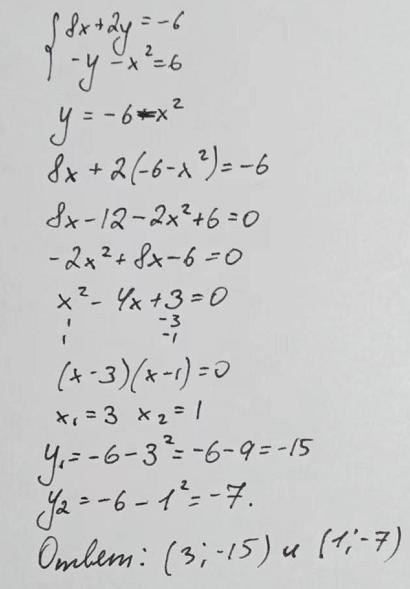 { 8x+2y=-6
-y-x²=6
y=-6-x²
8x+2(-6-x²)=-6
8x-12-2x²+6=0
-2x²+8x-6=0
x²-4x+3=0
1 -3
1 -1
(x-3)(x-1)=0
x₁=3 x₂=1
y₁=-6-3²=-6-9=-15
y₂=-6-1²=-7.
Ответ: (3;-15) и (1;-7)